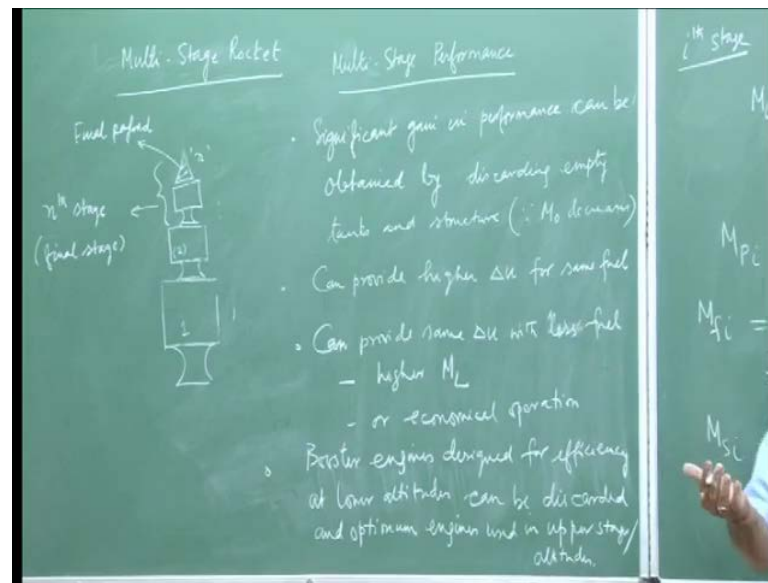 Multi-Stage Rocket
Final payload
'n'
nth stage
(final stage)
(2)
1
Multi-Stage Performance
• Significant gain in performance can be
obtained by discarding empty
tanks and structure (∵ M₀ decreases)
• Can provide higher Δu for same fuel
• Can provide same Δu with less fuel
– higher M_L
– or economical operation
• Booster engines designed for efficiency
at lower altitudes can be discarded
and optimum engines used in upper stage/
altitudes.
ith stage
M_Pi
M_fi =
M_Si